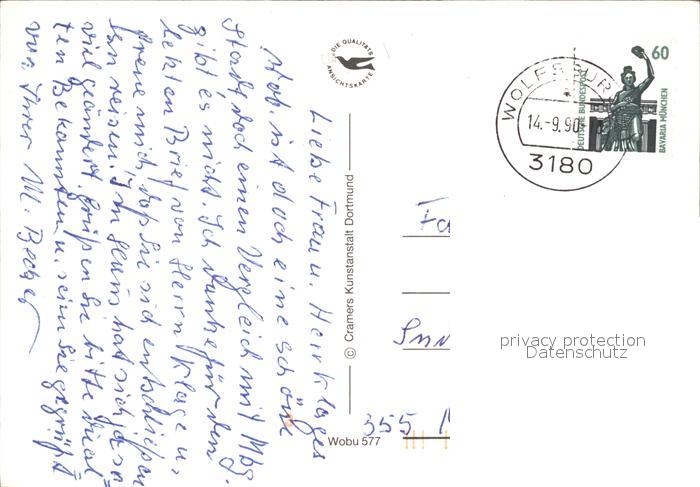 Liebe Frau u. Herr Klages
Wob. ist doch eine schöne
Stadt doch einen Vergleich mit Mbg
gibt es nicht. Ich danke für den
letzten Brief von Herrn Klages u.
freue mich, daß Sie sich entschließen
zu reisen. Im Haus hat sich ja so
viel geändert. Grüßen Sie bitte die al-
ten Bekannten u. seien Sie gegrüßt
von Ihrer M. Becker
DIE QUALITÄTS
ANSICHTSKARTE
© Cramers Kunstanstalt Dortmund
Wobu 577
WOLFSBUR
14.-9.90
3180
60
DEUTSCHE BUNDESPOST
BAVARIA MÜNCHEN
Fa
355
privacy protection
Datenschutz